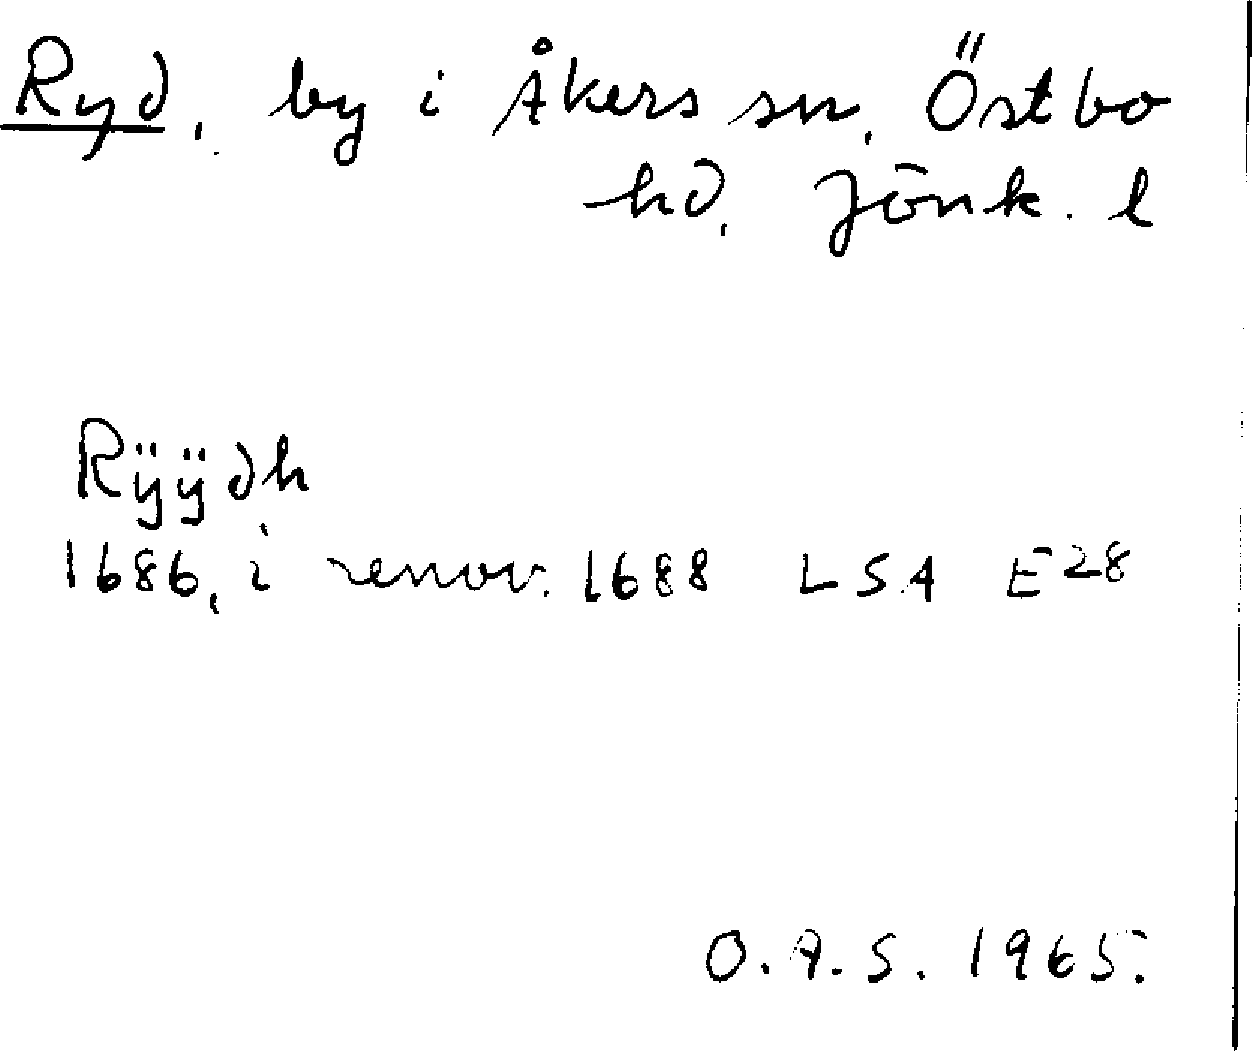 Ryd, by i Åkers sn, Östbo
hd, Jönk. l
Rÿÿdh
1686, i renov. 1688 LSA E28
O.A.S. 1965.